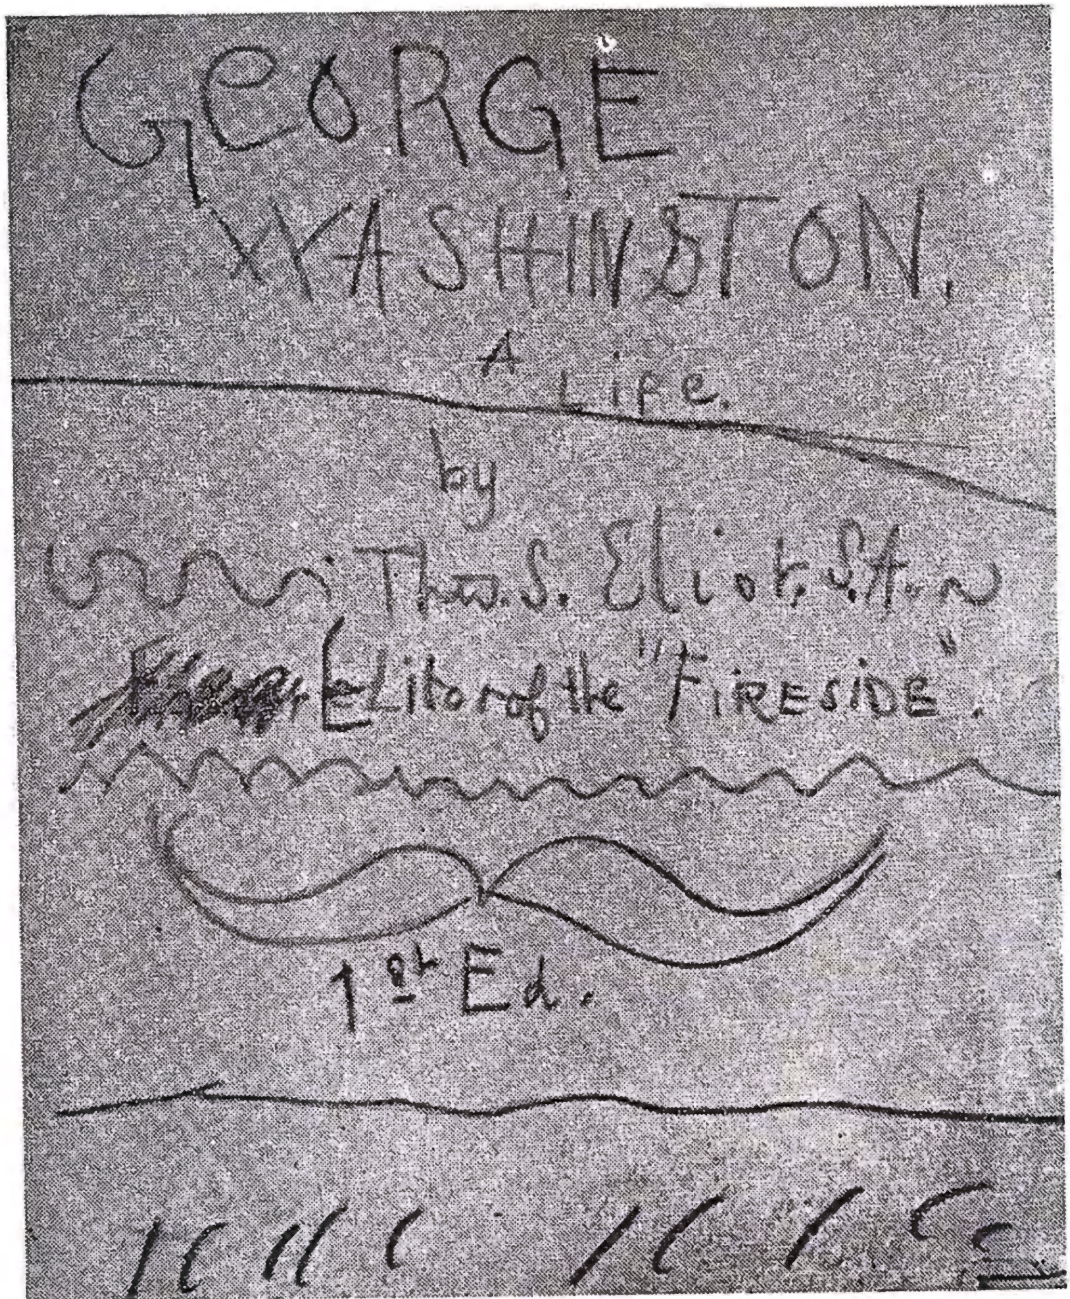 GEORGE
WASHINGTON.
A
Life.
by
Thos. S. Eliot, S.A.
Editor of the "FIRESIDE".
1st Ed.